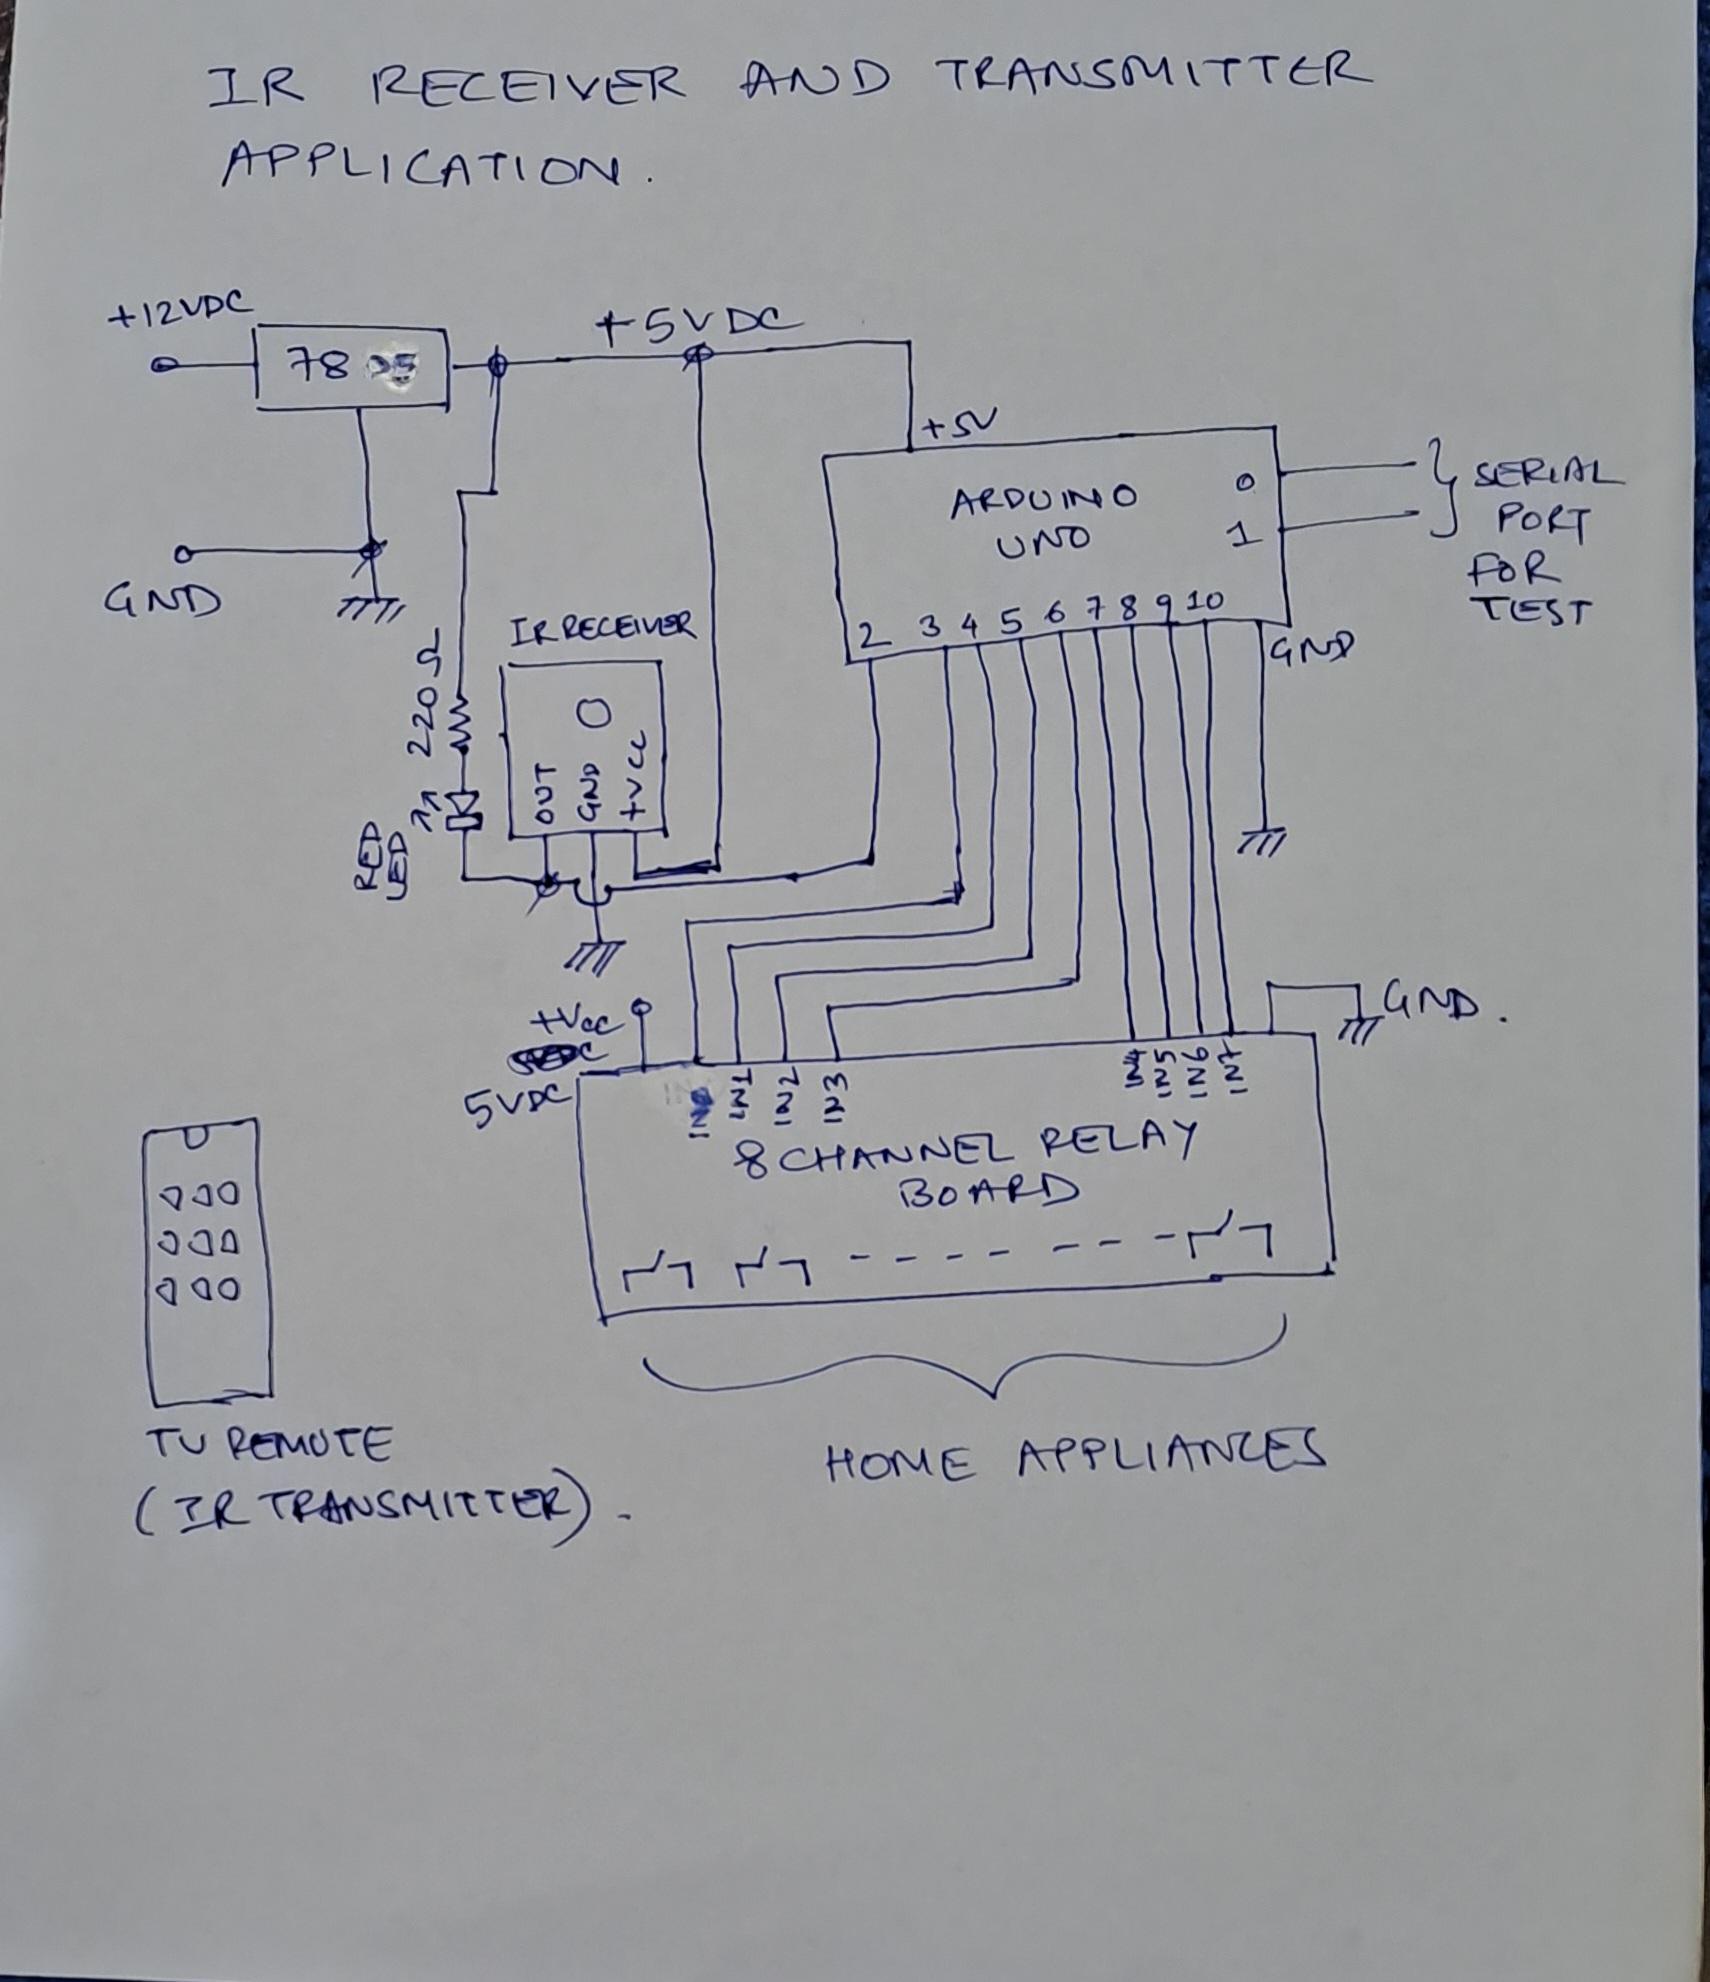 IR RECEIVER AND TRANSMITTER
APPLICATION.
+12VDC
7805
+5VDC
+5V
ARDUINO
UNO
0
1
SERIAL
PORT
FOR
TEST
GND
2 3 4 5 6 7 8 9 10
GND
220Ω
IR RECEIVER
OUT
GND
+VCC
RED
LED
+Vcc
5VDC
GND.
IN1
IN2
IN3
IN4
IN5
IN6
IN7
8 CHANNEL RELAY
BOARD
TV REMOTE
(IR TRANSMITTER).
HOME APPLIANCES